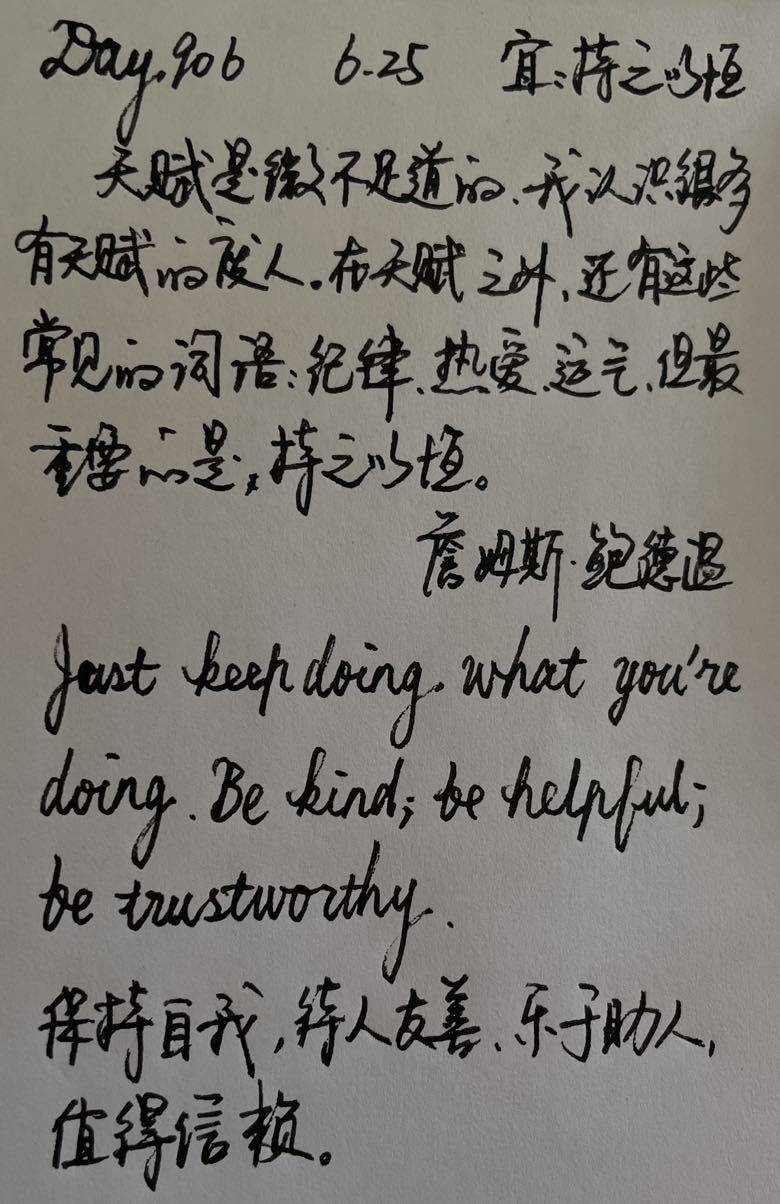 Day.906 6.25 宜:持之以恒
天赋是微不足道的、我认识很多
有天赋的废人。在天赋之外、还有这些
常见的词语:纪律、热爱、运气、但最
重要的是,持之以恒。
詹姆斯·鲍德温
Just keep doing. what you're
doing. Be kind; be helpful;
be trustworthy.
保持自我,待人友善、乐于助人,
值得信赖。